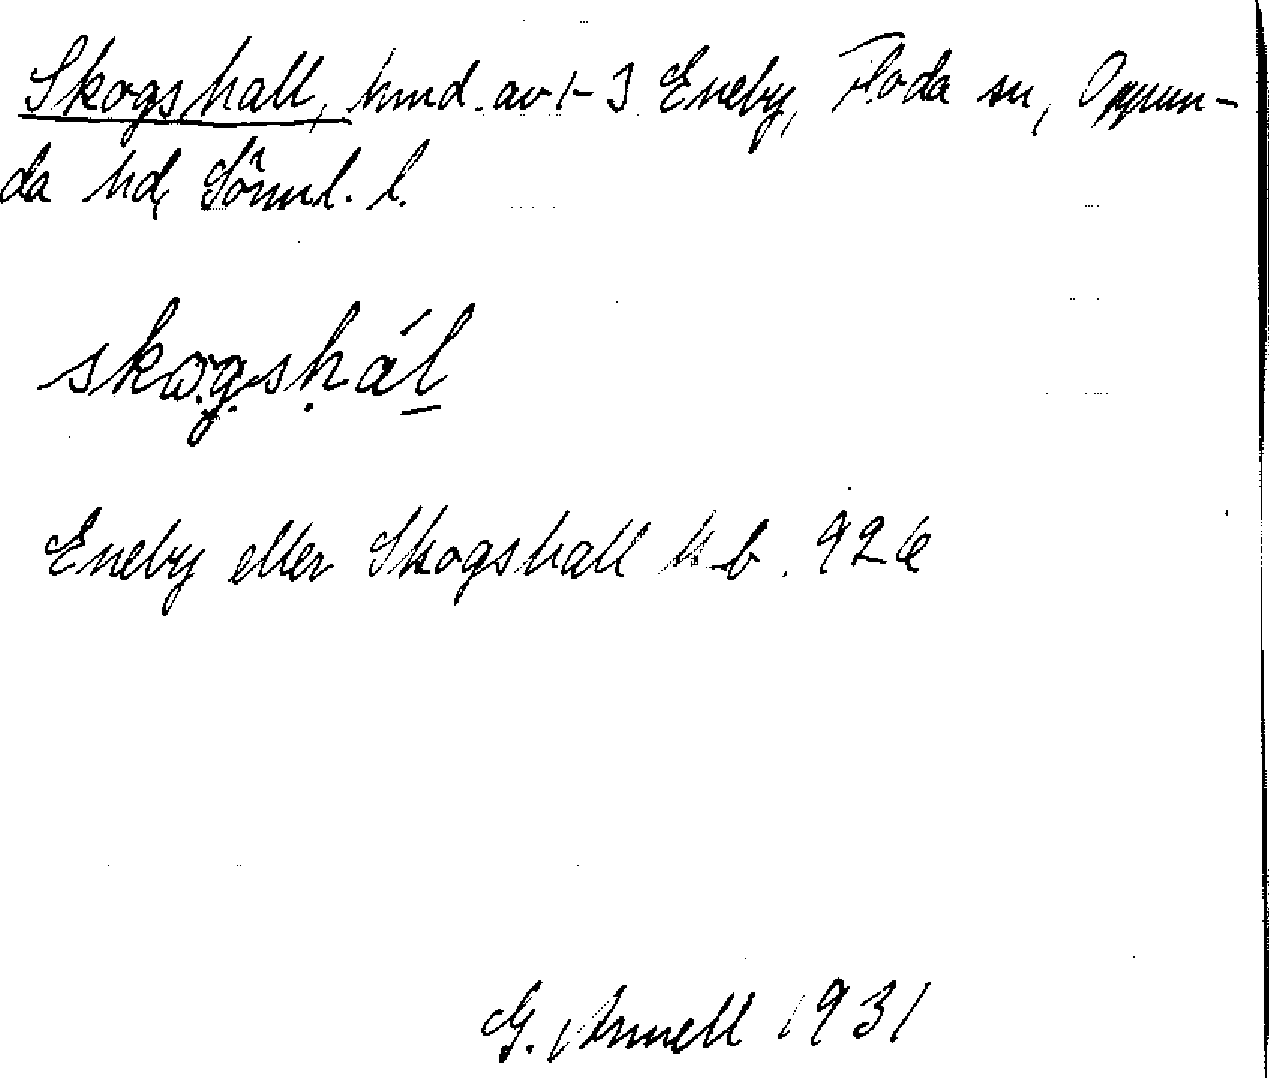 Skogshall, hmd. av 1-3 Eneby, Floda sn, Oppun-
da hd, Sörml. l.
skogshál
Eneby eller Skogshall kb. 926
G. Annell 1931